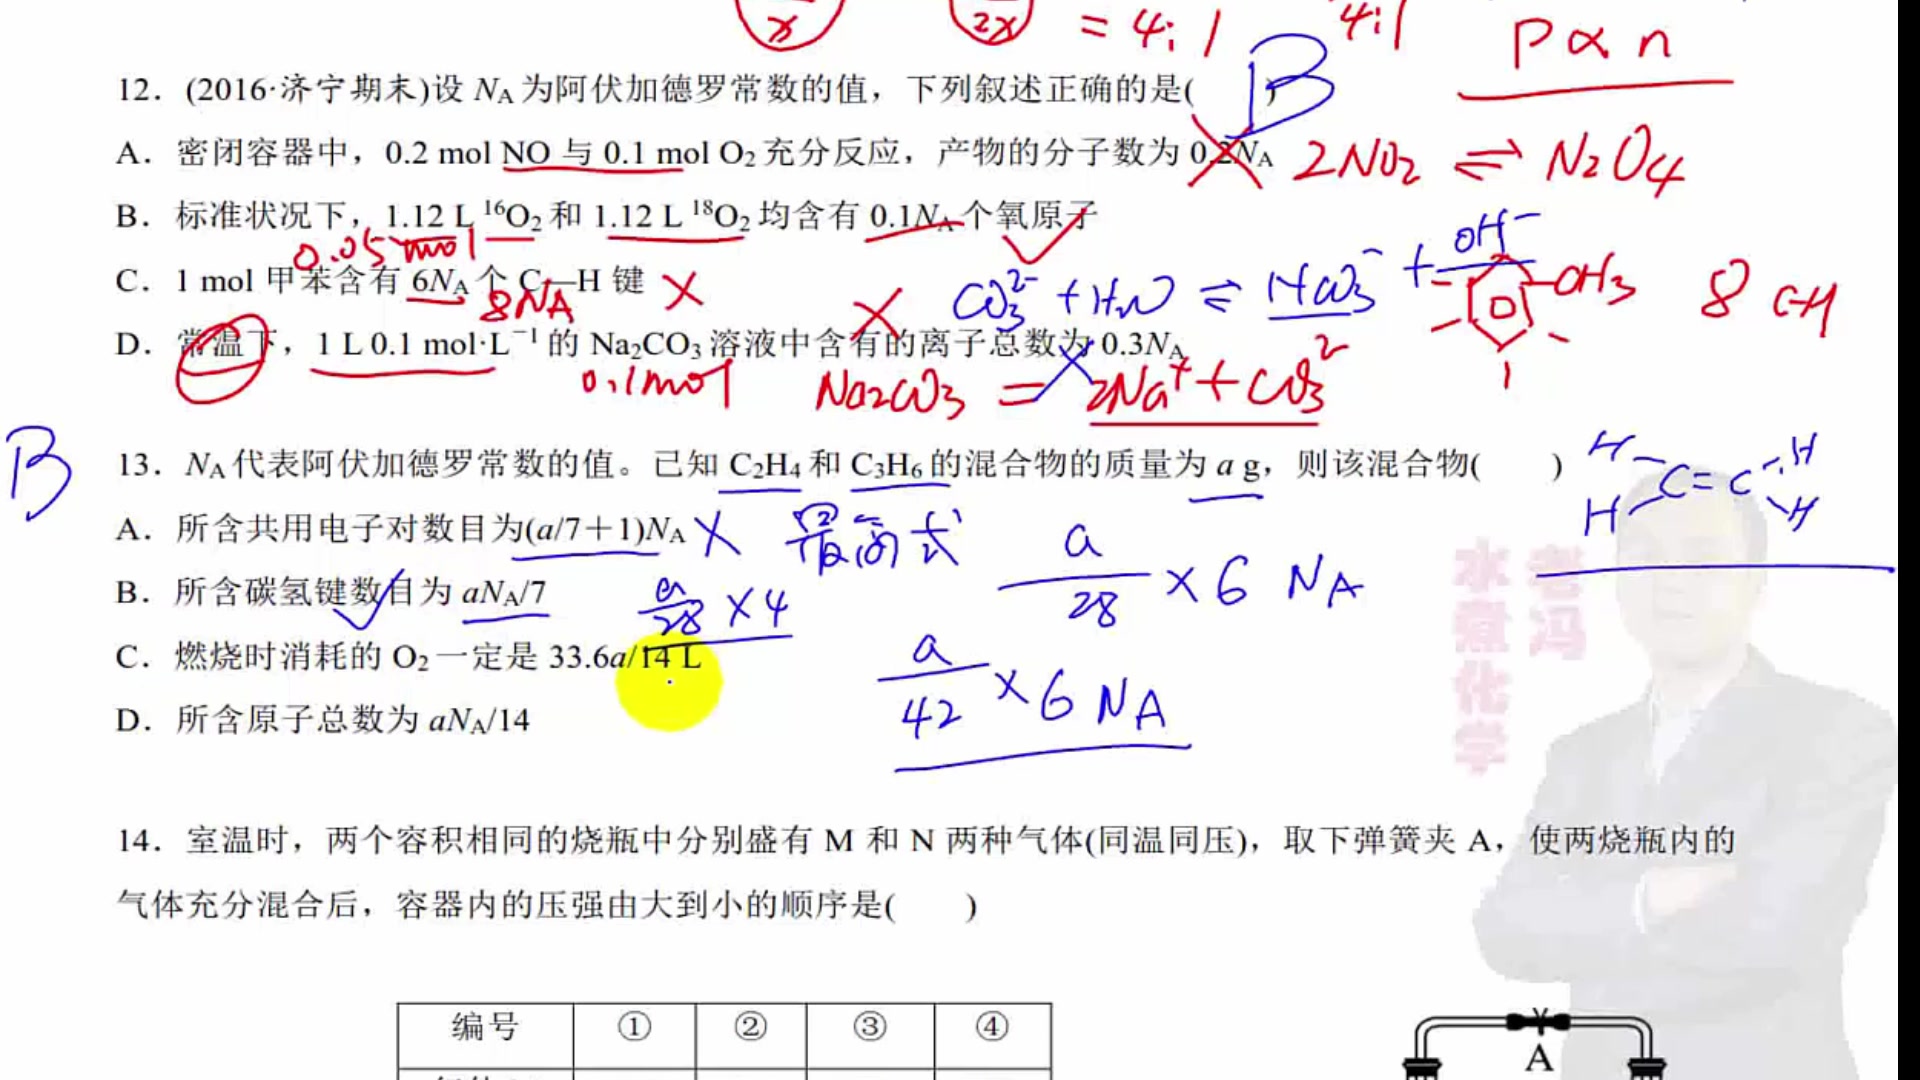 x 2x = 4:1 4:1 P∝n
12．(2016·济宁期末)设 NA 为阿伏加德罗常数的值，下列叙述正确的是( B )
A．密闭容器中，0.2 mol NO 与 0.1 mol O2 充分反应，产物的分子数为 0.2NA 2NO2 ⇌ N2O4
B．标准状况下，1.12 L 16O2 和 1.12 L 18O2 均含有 0.1NA 个氧原子
0.05mol CO3²⁻ + H2O ⇌ HCO3⁻ + OH⁻
C．1 mol 甲苯含有 6NA 个 C—H 键 CH3 8 C-H
8NA
D．常温下，1 L 0.1 mol·L⁻¹ 的 Na2CO3 溶液中含有的离子总数为 0.3NA
0.1mol Na2CO3 = 2Na⁺ + CO3²⁻
B 13．NA 代表阿伏加德罗常数的值。已知 C2H4 和 C3H6 的混合物的质量为 a g，则该混合物( )
H H C=C H H
A．所含共用电子对数目为(a/7＋1)NA 最简式 a/28 × 6 NA
B．所含碳氢键数目为 aNA/7 a/28 × 4
C．燃烧时消耗的 O2 一定是 33.6a/14 L a/42 × 6 NA
D．所含原子总数为 aNA/14
老冯
水煮化学
14．室温时，两个容积相同的烧瓶中分别盛有 M 和 N 两种气体(同温同压)，取下弹簧夹 A，使两烧瓶内的
气体充分混合后，容器内的压强由大到小的顺序是( )
编号 ① ② ③ ④
A